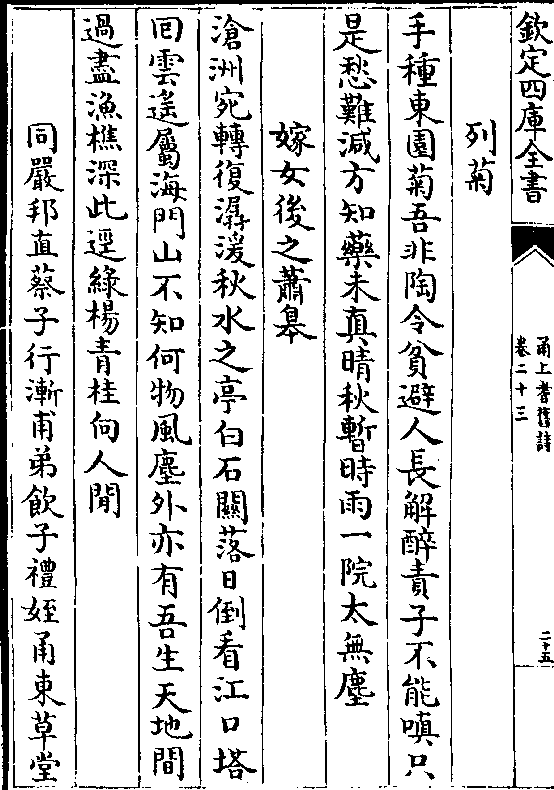 欽定四庫全書
甬上耆舊詩
卷二十三
二十五
列菊
手種東園菊吾非陶令貧避人長解醉責子不能嗔只
是愁難減方知藥未真晴秋暫時雨一院太無塵
嫁女後之蕭皋
滄洲宛轉復潺湲秋水之亭白石關落日倒看江口塔
囘雲遙屬海門山不知何物風塵外亦有吾生天地間
過盡漁樵深此逕綠楊青桂向人閒
同嚴邦直蔡子行漸甫弟飲子禮姪甬東草堂